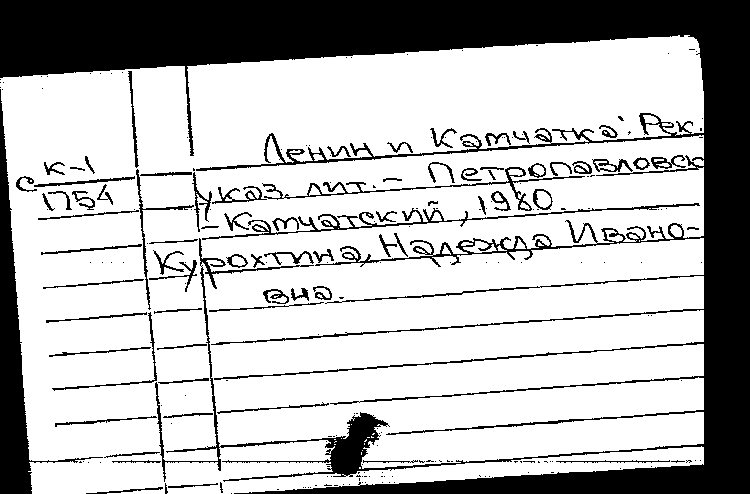 Ленин и Камчатка: Рек.
с К-1
1754
указ. лит. - Петропавловск
-Камчатский, 1980.
Курохтина, Надежда Ивано-
вна.